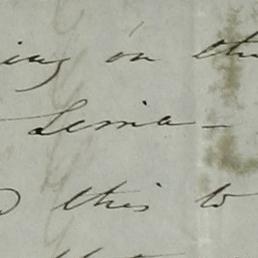 ing on the
Lima –
this to